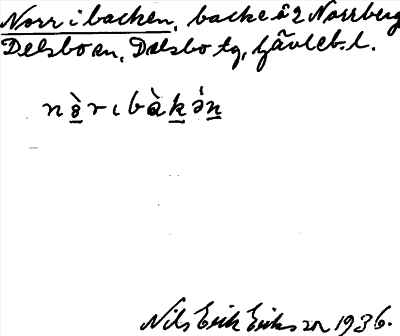 Norr i backen, backe å 2 Norrberg
Delsbo sn, Delsbo tg, Gävleb. l.
nò̱rɩbàḵən̲
Nils Erik Erikson 1936.